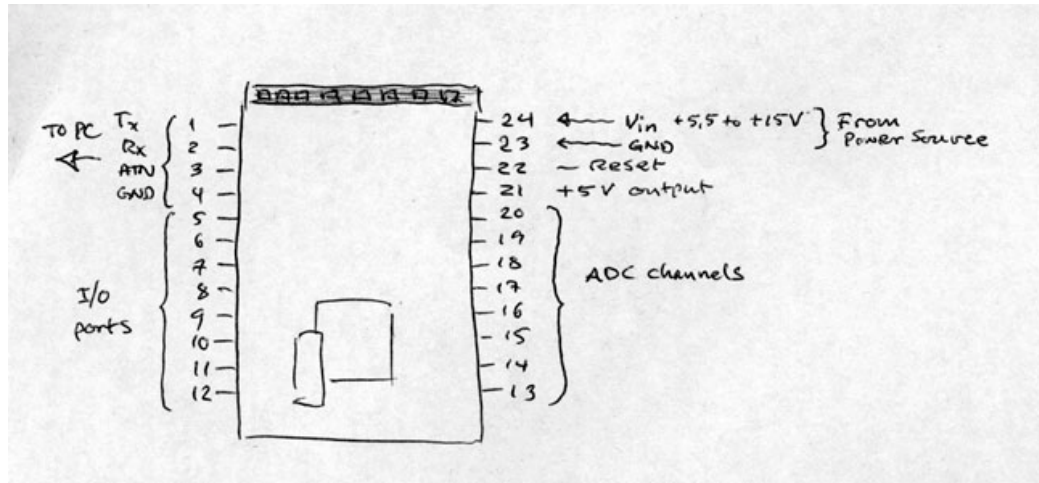 TO PC
Tx 1
Rx 2
ATN 3
GND 4
5
6
7
8
9
10
11
12
I/O
ports
24 Vin +5,5 to +15V
23 GND
From
Power Source
22 – Reset
21 +5V output
20
19
18
17
16
15
14
13
ADC channels